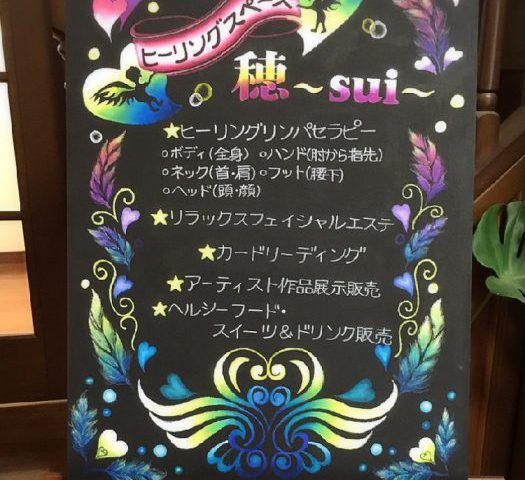 ヒーリングスペース
穂～sui～
★ヒーリングリンパセラピー
○ボディ(全身) ○ハンド(肘から指先)
○ネック(首・肩) ○フット(腰下)
○ヘッド(頭・顔)
★リラックスフェイシャルエステ
★カードリーディング
★アーティスト作品展示販売
★ヘルシーフード・
スイーツ&ドリンク販売